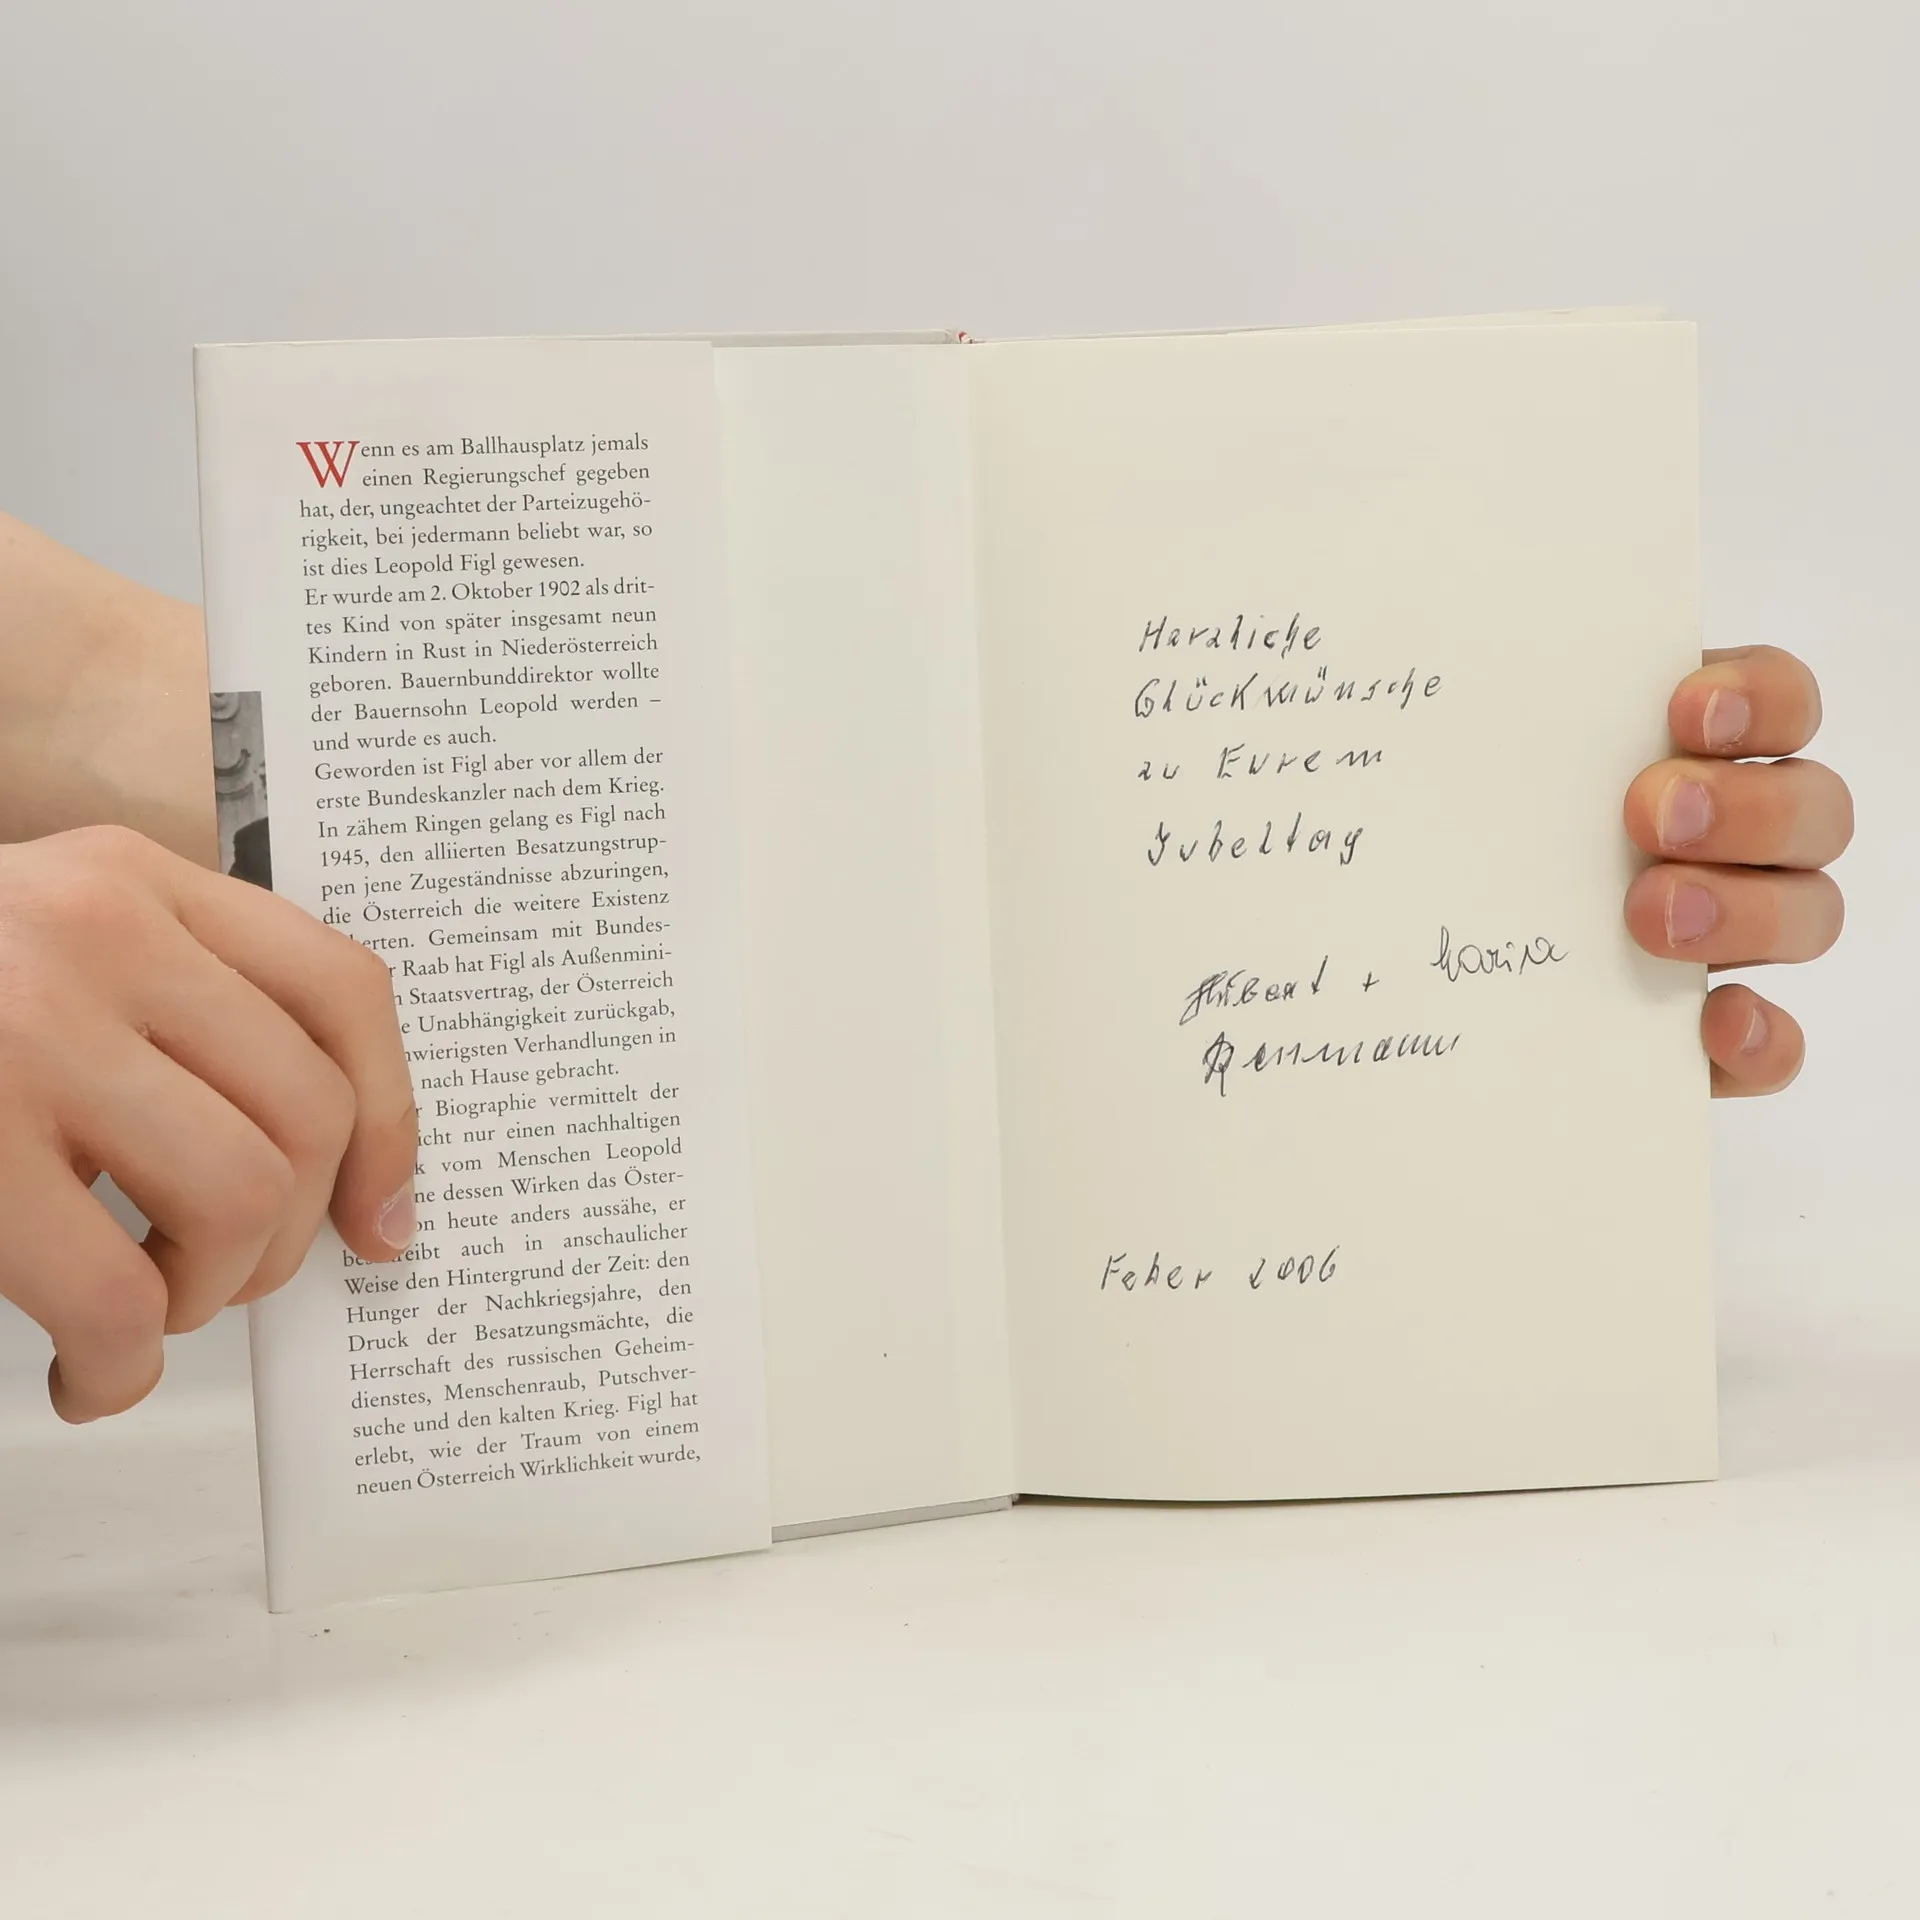 Wenn es am Ballhausplatz jemals
einen Regierungschef gegeben
hat, der, ungeachtet der Parteizugehö-
rigkeit, bei jedermann beliebt war, so
ist dies Leopold Figl gewesen.
Er wurde am 2. Oktober 1902 als drit-
tes Kind von später insgesamt neun
Kindern in Rust in Niederösterreich
geboren. Bauernbunddirektor wollte
der Bauernsohn Leopold werden –
und wurde es auch.
Geworden ist Figl aber vor allem der
erste Bundeskanzler nach dem Krieg.
In zähem Ringen gelang es Figl nach
1945, den alliierten Besatzungstrup-
pen jene Zugeständnisse abzuringen,
die Österreich die weitere Existenz
erten. Gemeinsam mit Bundes-
r Raab hat Figl als Außenmini-
n Staatsvertrag, der Österreich
e Unabhängigkeit zurückgab,
wierigsten Verhandlungen in
nach Hause gebracht.
r Biographie vermittelt der
icht nur einen nachhaltigen
k vom Menschen Leopold
ne dessen Wirken das Öster-
on heute anders aussähe, er
auch in anschaulicher
Weise den Hintergrund der Zeit: den
Hunger der Nachkriegsjahre, den
Druck der Besatzungsmächte, die
Herrschaft des russischen Geheim-
dienstes, Menschenraub, Putschver-
suche und den kalten Krieg. Figl hat
erlebt, wie der Traum von einem
neuen Österreich Wirklichkeit wurde,
Herzliche
Glückwünsche
zu Eurem
Jubeltag
+ Maria
Feber 2006